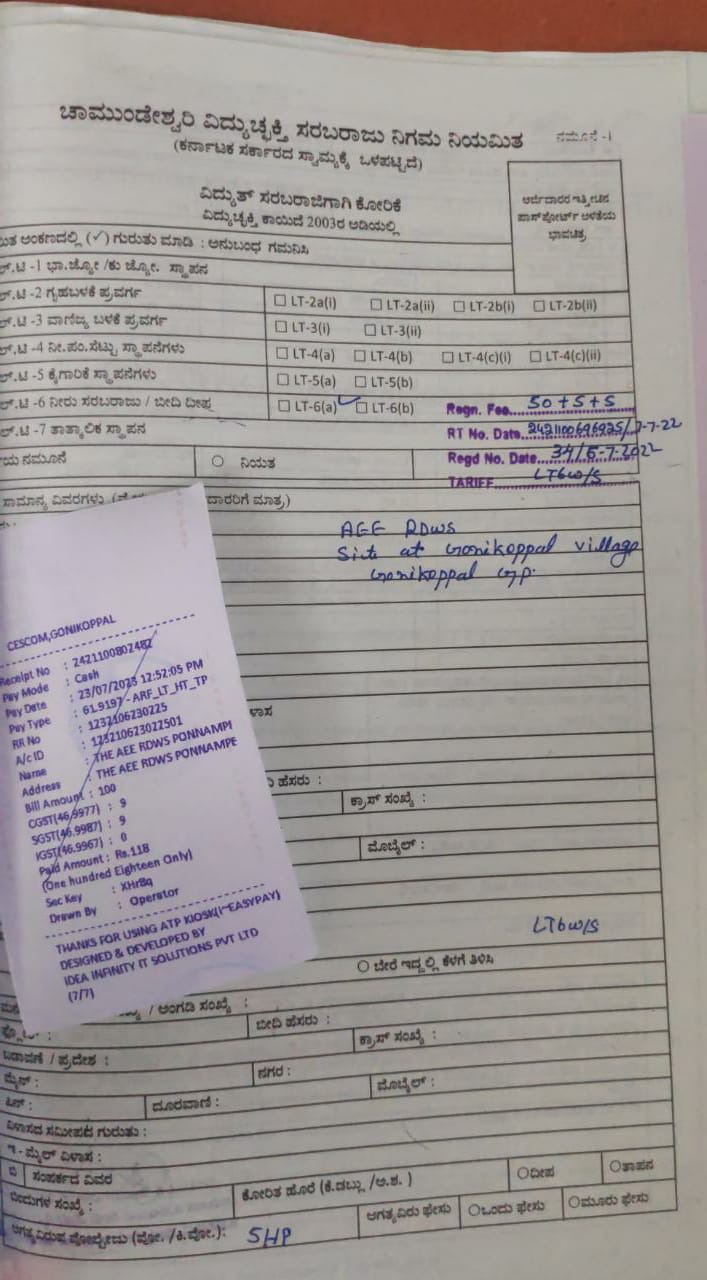 ಚಾಮುಂಡೇಶ್ವರಿ ವಿದ್ಯುಚ್ಛಕ್ತಿ ಸರಬರಾಜು ನಿಗಮ ನಿಯಮಿತ
ನಮೂನೆ -1
(ಕರ್ನಾಟಕ ಸರ್ಕಾರದ ಸ್ವಾಮ್ಯಕ್ಕೆ ಒಳಪಟ್ಟಿದೆ)
ವಿದ್ಯುತ್ ಸರಬರಾಜಿಗಾಗಿ ಕೋರಿಕೆ
ವಿದ್ಯುಚ್ಛಕ್ತಿ ಕಾಯಿದೆ 2003ರ ಅಡಿಯಲ್ಲಿ
ಅರ್ಜಿದಾರರ ಇತ್ತೀಚಿನ
ಪಾಸ್‌ಪೋರ್ಟ್ ಅಳತೆಯ
ಭಾವಚಿತ್ರ
ಅಂಕಣದಲ್ಲಿ (✓) ಗುರುತು ಮಾಡಿ : ಅನುಬಂಧ ಗಮನಿಸಿ
ಲ್.ಟಿ -1 ಭಾ.ಜ್ಯೋ /ಕು ಜ್ಯೋ. ಸ್ಥಾಪನ
ಲ್.ಟಿ -2 ಗೃಹಬಳಕೆ ಪ್ರವರ್ಗ ☐ LT-2a(i) ☐ LT-2a(ii) ☐ LT-2b(i) ☐ LT-2b(ii)
ಲ್.ಟಿ -3 ವಾಣಿಜ್ಯ ಬಳಕೆ ಪ್ರವರ್ಗ ☐ LT-3(i) ☐ LT-3(ii)
ಲ್.ಟಿ -4 ನೀ.ಪಂ.ಸೆಟ್ಟು ಸ್ಥಾಪನೆಗಳು ☐ LT-4(a) ☐ LT-4(b) ☐ LT-4(c)(i) ☐ LT-4(c)(ii)
ಲ್.ಟಿ -5 ಕೈಗಾರಿಕೆ ಸ್ಥಾಪನೆಗಳು ☐ LT-5(a) ☐ LT-5(b)
ಲ್.ಟಿ -6 ನೀರು ಸರಬರಾಜು / ಬೀದಿ ದೀಪ ☐ LT-6(a) ✓ ☐ LT-6(b)
Regn. Fee....50+5+5
ಲ್.ಟಿ -7 ತಾತ್ಕಾಲಿಕ ಸ್ಥಾಪನ
RT No. Date..2421100696925/7-7-22
ಯ ನಮೂನೆ ○ ನಿಯತ
Regd No. Date...34/5-7-2022
TARIFF.......LT6W/S
ಸಾಮಾನ್ಯ ವಿವರಗಳು
ದಾರರಿಗೆ ಮಾತ್ರ)
AEE RDWS
Site at Gonikoppal village
Gonikoppal Gp.
CESCOM,GONIKOPPAL
Receipt No : 2421100802482
Pay Mode : Cash
Pay Date : 23/07/2023 12:52:05 PM
Pay Type : 61.9197 - ARF_LT_HT_TP
RR No : 1232106230225
A/c ID : 123210623022501
Name : THE AEE RDWS PONNAMPI
Address : THE AEE RDWS PONNAMPE
Bill Amount : 100
CGST(46.9977) : 9
SGST(46.9987) : 9
IGST(46.9967) : 0
Paid Amount : Rs.118
(One hundred Eighteen Only)
Sec Key : XHr8q
Drawn By : Operator
THANKS FOR USING ATP KIOSK(I~EASYPAY)
DESIGNED & DEVELOPED BY
IDEA INFINITY IT SOLUTIONS PVT LTD
(7/7)
ಳಾಸ
ಹೆಸರು :
ಕ್ರಾಸ್ ಸಂಖ್ಯೆ :
ಮೊಬೈಲ್ :
LT6W/S
○ ಬೇರೆ ಇದ್ದಲ್ಲಿ ಕೆಳಗೆ ತಿಳಿಸಿ
/ ಅಂಗಡಿ ಸಂಖ್ಯೆ :
ಬೀದಿ ಹೆಸರು :
ಬಡಾವಣೆ / ಪ್ರದೇಶ : ಕ್ರಾಸ್ ಸಂಖ್ಯೆ :
ಮೈಲ್ : ನಗರ :
ಪಿನ್ : ದೂರವಾಣಿ : ಮೊಬೈಲ್ :
ವಿಳಾಸದ ಸಮೀಪದ ಗುರುತು :
ಇ - ಮೈಲ್ ವಿಳಾಸ :
ಬಿ ಸಂಪರ್ಕದ ವಿವರ
ಬಿಂದುಗಳ ಸಂಖ್ಯೆ : ಕೋರಿತ ಹೊರೆ (ಕಿ.ಡಬ್ಲು /ಅ.ಶ. ) ○ದೀಪ ○ತಾಪನ
ಅಗತ್ಯವಿರುವ ವೋಲ್ಟೇಜು (ವೋ. /ಕಿ.ವೋ.): 5HP ಅಗತ್ಯವಿರು ಫೇಸು ○ಒಂದು ಫೇಸು ○ಮೂರು ಫೇಸು